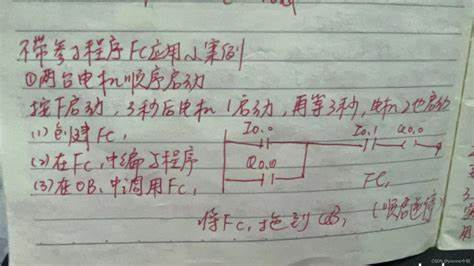 不带参子程序FC应用小案例
①两台电机顺序启动
按下启动，3秒后电机1启动，再等3秒，电机2也启动
(1) 创建FC1
I0.0
I0.1
Q0.0
(2) 在FC1中编子程序
Q0.0
(3) 在OB1中调用FC1
FC1
将FC1拖到OB1
CSDN